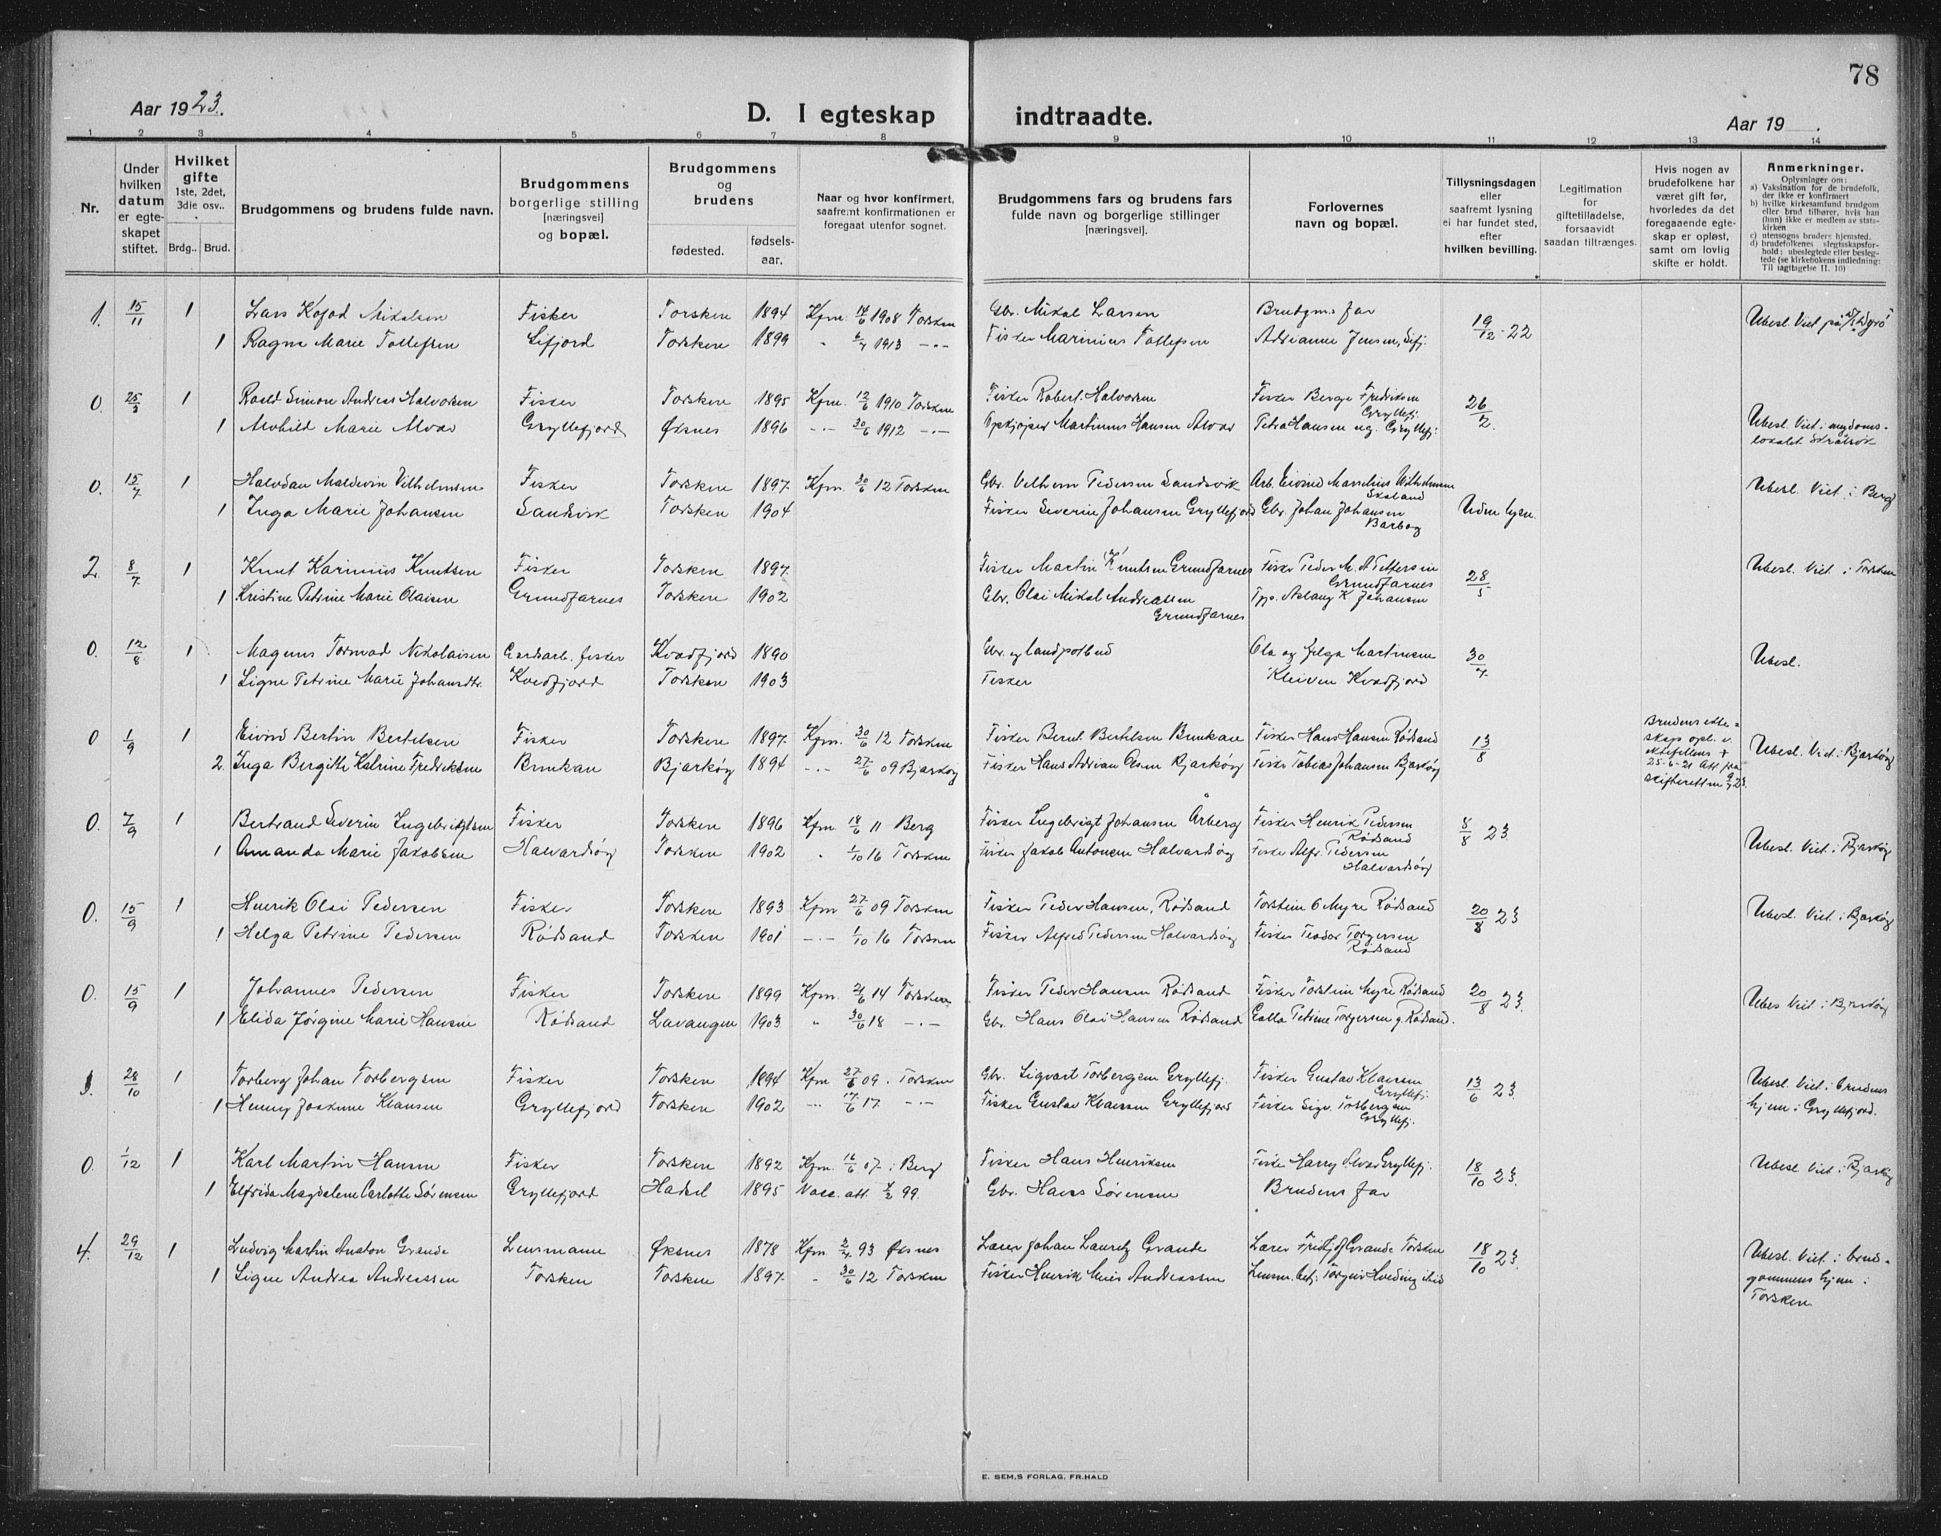 78
Aar 1923.
D. I egteskap indtraadte.
Aar 19 .
1 2 3 4 5 6 7 8 9 10 11 12 13 14
Nr.
Under hvilken datum er egteskapet stiftet.
Hvilket gifte 1ste, 2det, 3die osv..
Brdg.. Brud.
Brudgommens og brudens fulde navn.
Brudgommens borgerlige stilling [næringsvei] og bopæl.
Brudgommens og brudens
fødested. fødselsaar.
Naar og hvor konfirmert, saafremt konfirmationen er foregaat utenfor sognet.
Brudgommens fars og brudens fars fulde navn og borgerlige stillinger [næringsvei].
Forlovernes navn og bopæl.
Tillysningsdagen eller saafremt lysning ei har fundet sted, efter hvilken bevilling.
Legitimation for giftetilladelse, forsaavidt saadan tiltrænges.
Hvis nogen av brudefolkene har været gift før, hvorledes da det foregaaende egteskap er opløst, samt om lovlig skifte er holdt.
Anmerkninger.
Oplysninger om:
a) Vaksination for de brudefolk, der ikke er konfirmert
b) hvilke kirkesamfund brudgom eller brud tilhører, hvis han (hun) ikke er medlem av statskirken
c) utensogns bruders hjemsted.
d) brudefolkenes slegtsskapsforhold; ubeslegtede eller beslegtede (se kirkebokens indledning: Til iagttagelse II. 10)
1. 15/11 1 Lars Kofod Mikalsen Fisker Torsken 1894 Kfm. 1908 Torsken Gbr. Mikal Larsen Brudgms far 19/12-22 Ubesl. Viet på
1 Ragna Marie Tollefsen Sifjord Torsken 1899 " 1913 -"- Fisker Marinius Tollefsen Adrianne Jensen, Sifj.
0. 25/3 1 Roald Simon Andreas Halvorsen Fisker Torsken 1895 Kfm. 12/6 1910 Torsken Fisker Robert Halvorsen Fisker Berge Fredriksen Gryllefj. 26/2.
1 Alvhild Marie Alvær Gryllefjord Øksnes 1896 -"- 30/6 1912 -"- Opkjøper Martinus Hansen Alvær Petra Hansen ug. Gryllefj. Ubesl. Viet i
0. 15/7 1 Halvdan Maldevin Vilhelmsen Fisker Torsken 1897 Kfm. 30/6 12 Torsken Gbr. Velhem Pedersen Sandsvik Arb. Eivind Marselius Wilhelmsen Skaland Ubesl. Viet i Berg
1 Inga Marie Johansen Sandsvik Torsken 1904 Fisker Severin Johansen Gryllefjord Gbr. Johan Johansen Barbog Uden lysn.
2. 8/7 1 Knut Karinius Knutsen Fisker Torsken 1897 Fisker Martin Knutsen Grundfarnes Fisker Peder M. A Pettersen Grundfarnes 28/5 Ubesl. Viet i Torsken
1 Kristine Petrine Marie Olaisen Grundfarnes Torsken 1902 Gbr. Olai Mikal Andreassen Grundfarnes Tpp. Aslaug K Johansen
0. 12/8 1 Magnus Tormod Nikolaisen Gardsarb. fisker Kvædfjord 1890 Gbr. og landpostbud Ola og Helga Martinsen 30/7 Ubesl.
1 Signe Petrine Marie Johansdtr. Kvedfjord Torsken 1903 Fisker Kleiven Kvædfjord
0 1/9 1 Eivind Bertin Bertelsen Fisker Torsken 1897 Kfm. 30/6 12 Torsken Fisker Bernt Bertelsen Brunkan Fisker Hans Hansen Rødsand 13/8 Ubesl. Viet i Bjarkøy
Brudens ekteskaps opl. v. ektefellens + 25-6-21 Att fra skifteretten 9/7 23.
2. Inga Bergitte Katrine Fredriksen Brunkan Bjarkøy 1894 -"- 27/6 09 Bjarkøy Fisker Hans Adrian Olsen Bjarkøy Fisker Tobias Johansen Bjarkøy
0. 7/9 1 Bertrand Severin Ingebrigtsen Fisker Torsken 1896 Kfm 18/6 11 Berg Fisker Ingebrigt Johansen Årberg Fisker Henrik Pedersen Rødsand 8/8 23. Ubesl. Viet i Bjarkøy
1 Amanda Marie Jakobsen Halvardsøy Torsken 1902 " 1/10 16 Torsken Fisker Jakob Antonsen Halvardsøy Fisker Alfr. Pedersen Halvardsøy
0. 15/9 1 Henrik Olai Pedersen Fisker Torsken 1893 Kfm 27/6 09 Torsken Fisker Peder Hansen, Rødsand Torstein O Myre Rødsand 20/8 23 Ubesl. Viet i Bjarkøy
1 Helga Petrine Pedersen Rødsand Torsken 1901 -"- 1/10 16 Torsken Fisker Alfred Pedersen Halvardsøy Fisker Teodor Torgersen Rødsand
0. 15/9 1 Johannes Pedersen Fisker Torsken 1899 Kfm. 21/6 14 Torsken Fisker Peder Hansen Rødsand Fisker Torstein Myre Rødsand 20/8 23. Ubes Viet i Bjarkøy
1 Elida Jørgine Marie Hansen Rødsand Lavangen 1903 " 30/6 18 -"- Gbr. Hans Olai Hansen Rødsand Calla Petrine Torgersen g. Rødsand.
3. 28/10 1 Torberg Johan Torbergsen Fisker Torsken 1894 Kfm 27/6 09. Torsken Gbr. Sigvart Torbergsen Gryllefj. Fisker Gustav Klaessen Gryllefj. 13/6 23. Ubesl. Viet i brudens hjem i Gryllefjord.
1 Henny Josefine Klausen Gryllefjord Torsken 1902 -"- 17/6 17 -"- Fisker Gustav Klaessen Gryllefjord Fisker Sigv. Torbergsen Gryllefj.
0. 1/12 1 Karl Martin Hansen Fisker Torsken 1892 Kfm. 16/6 07 i Berg Fisker Hans Henriksen Fisker Harry Alvær Gryllefj. 18/10 23. Ubesl. Viet i Bjarkøy
1 Elfrida Magdalene Carlotte Sørensen Gryllefjord Hadsel 1895 Vacc. att. 99. Gbr. Hans Sørensen Brudens far
4. 29/12 1 Ludvig Martin Anton Grande Lensmann Øksnes 1878 Kfm 2/4 93 Øksnes Lærer Johan Lauritz Grande Lærer Fridtjof Grande Torsken 18/10 23. Ubesl. Viet i brudgommens hjem i Torsken
1 Signe Andrea Andreassen Torsken Torsken 1897. " 30/6 12 Torsken Fisker Henrik Meier Andreassen Lensm. betj. Torgeir Hveding ibid
E. SEM,S FORLAG, FR.HALD